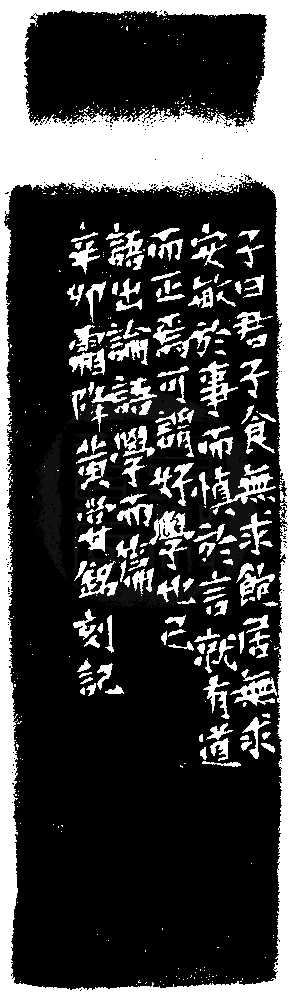 子曰君子食無求飽居無求
安敏於事而慎於言就有道
而正焉可謂好學也已
語出論語學而篇
辛卯霜降黄常銘刻記